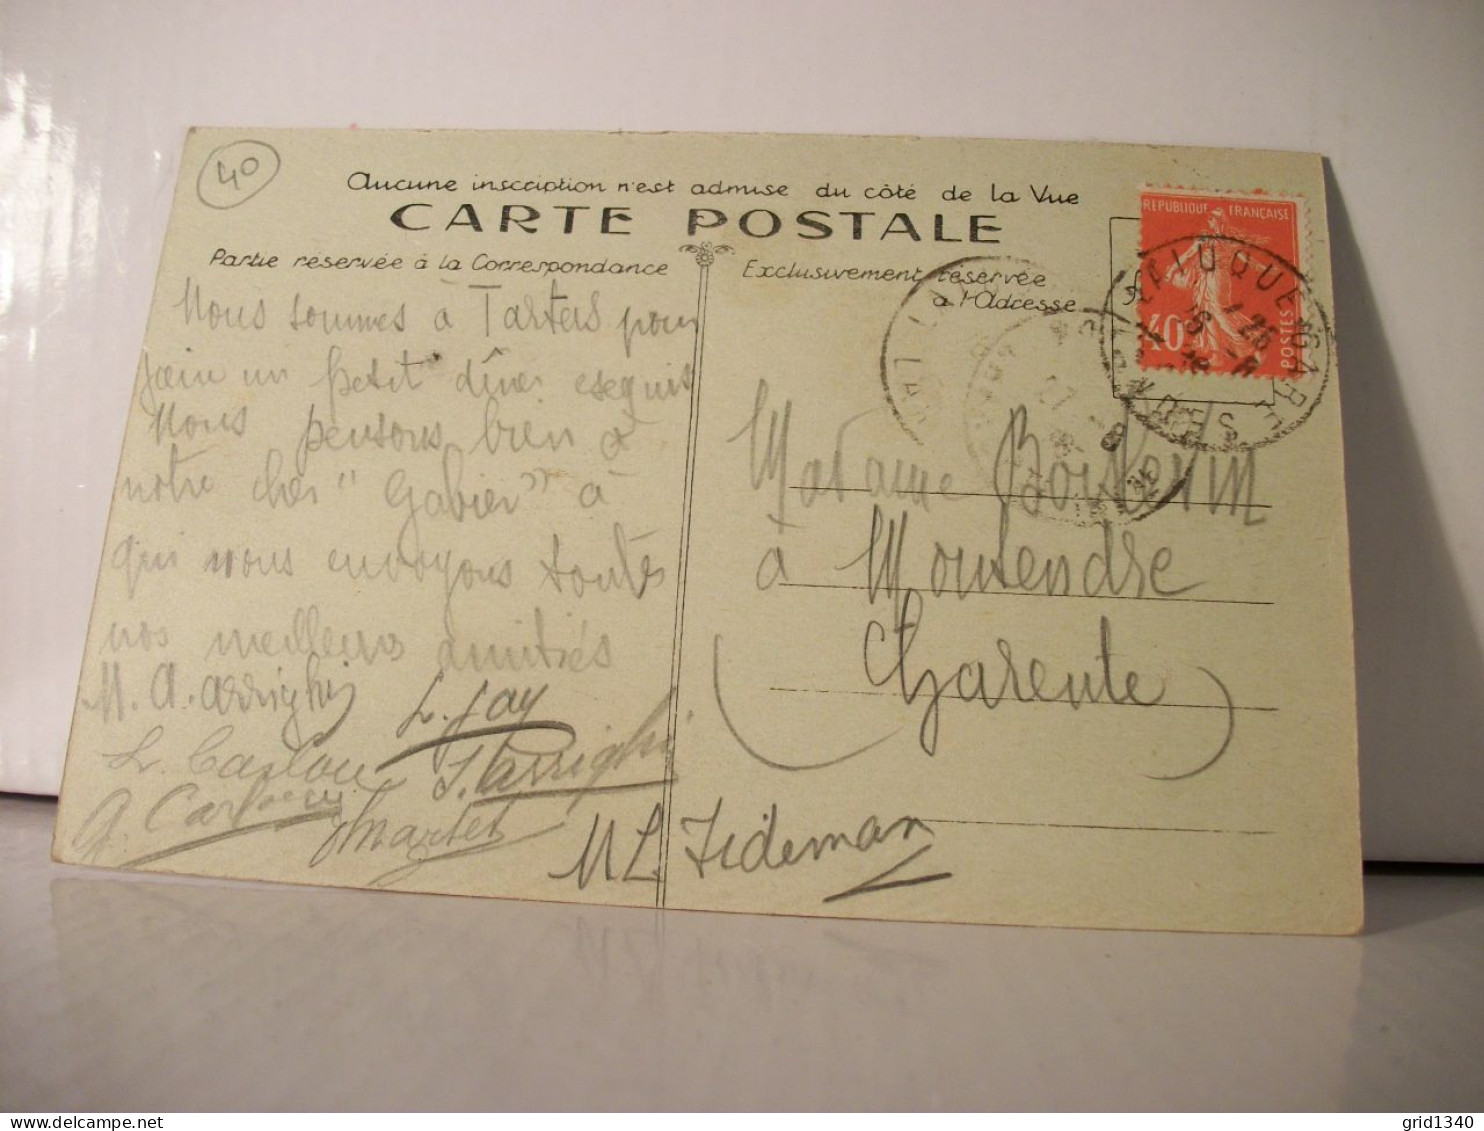 40
Aucune inscription n'est admise du côté de la Vue
CARTE POSTALE
Partie réservée à la Correspondance
Exclusivement réservée
à l'Adresse
REPUBLIQUE FRANÇAISE
40
POSTES
LALUQUE GARE
Nous sommes à Tartas pour
faire un petit dîner exquis
Nous pensons bien à
notre cher "Gabier" à
qui nous envoyons toutes
nos meilleurs amitiés
M. A. Arrighi
L. Jay
J. Arrighi
Martet
M L. Tideman
Madame
à Montendre
Charente
grid1340